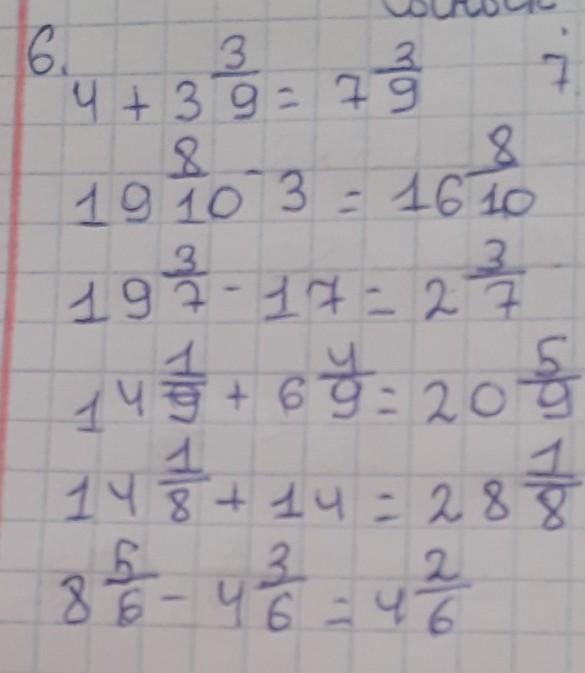 6.
4 + 3 3/9 = 7 3/9 7
19 8/10 - 3 = 16 8/10
19 3/7 - 17 = 2 3/7
14 1/9 + 6 4/9 = 20 5/9
14 1/8 + 14 = 28 1/8
8 5/6 - 4 3/6 = 4 2/6